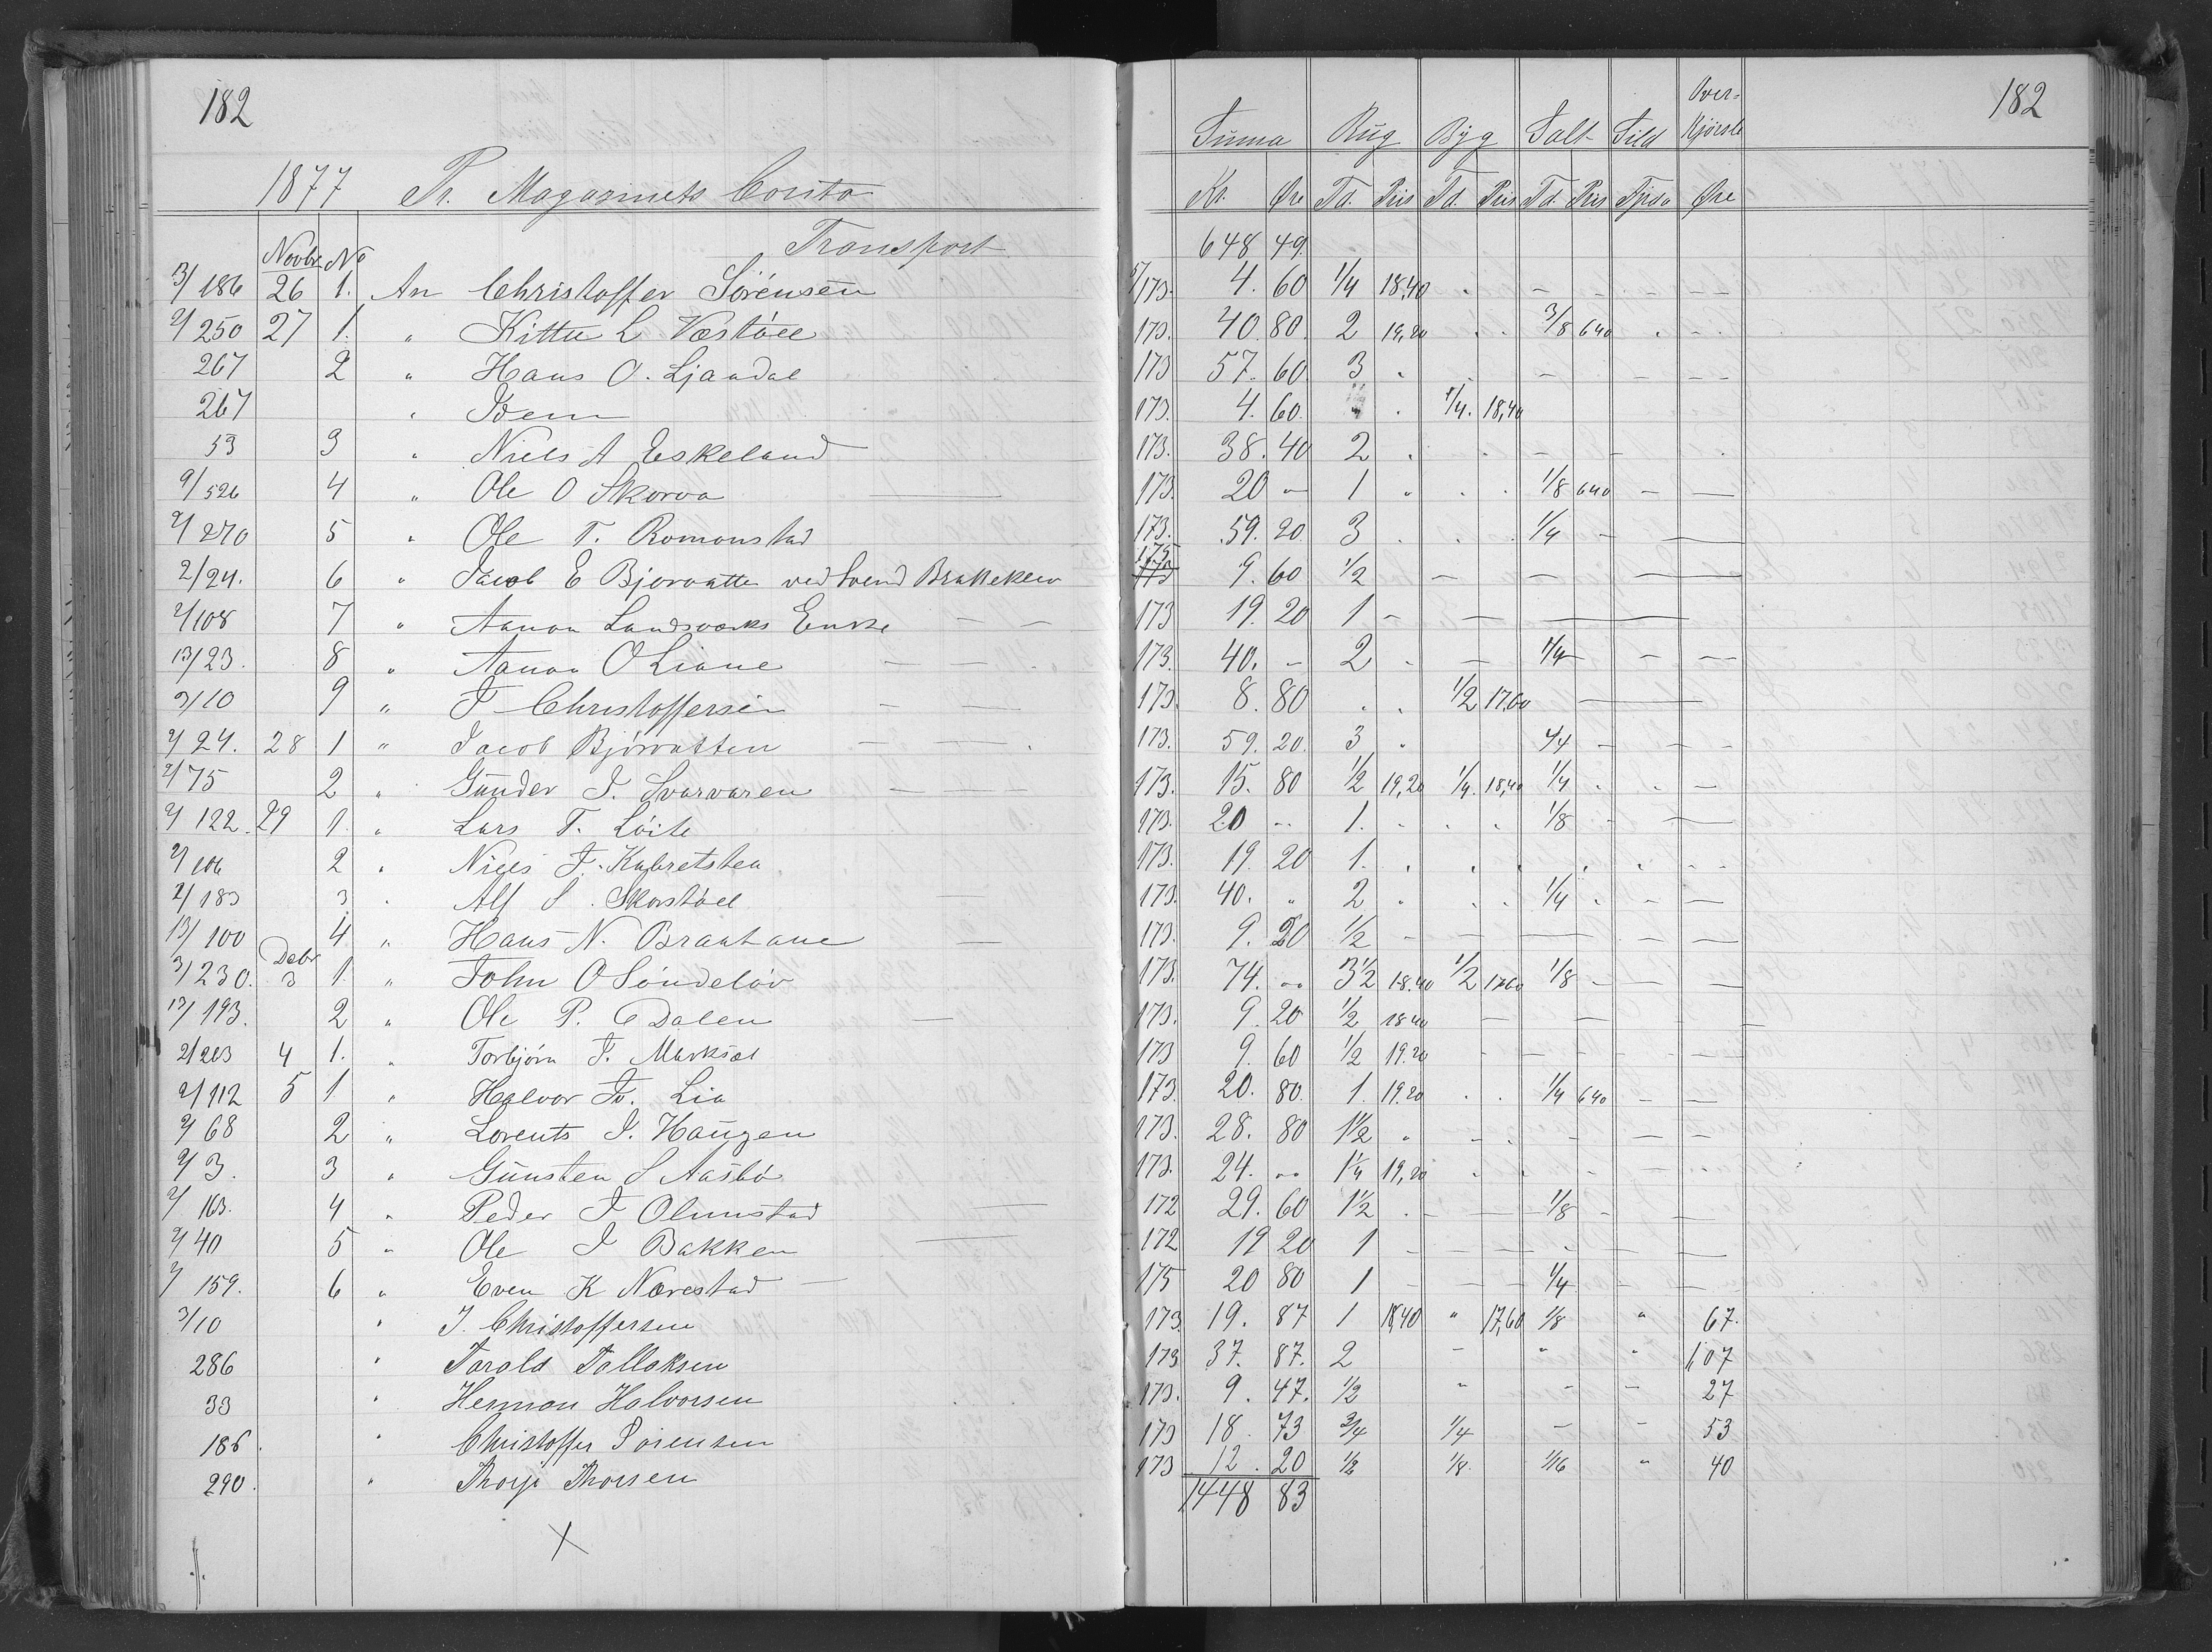 182
1877 Pr. Magazinets Conto
Transport
Novbr No
13/186 26 1. An Christoffer Sörensen
2/250 27 1. " Kittil L Væstöll
267 2 " Hans O. Ljaadal
267 " Idem
53 3 " Niels A Eskeland
9/526 4 " Ole O Skorva
2/270 5 " Ole T. Romonstad
2/24. 6 " Jacob E Bjorvatten ved Svend Brakeklev
2/108 7 " Aanon Landsværks Enke
13/23. 8 " Aanon O Liane
3/10 9 " J Christoffersen
2/24. 28 1 " Jacob Bjørvatten
2/75 2 " Gunder J. Svarvaren
2/122. 29 1. " Lars T. Löite
2/106 2 " Niels
2/183 3 " Alf S. Skorstöl
13/100 4 " Hans N.
Debr
3/230. 3 1. " John O Söndeløv
13/193. 2 " Ole P. Ødalen
2/203 4 1. " Torbjörn F. Marksæt
2/112 5 1 " Halvor Tr. Lia
2/68 2 " Lorents J. Haugen
2/3. 3 " Gunsten S Aasbö
2/163. 4 " Peder J Olimstad
2/40 5 " Ole J Bakken
2/159. 6 " Even K Nærestad
3/10 " J. Christoffersen
286 " Tarald Tallaksen
33 " Herman Halvorsen
186. " Christoffer Sörensen
290. " Thorje Thorsen
182
Over=
Summa Rug Byg Salt Sild Kjørsle
Kr. Øre Td. Pris Td. Pris Td. Pris Øre
648 49.
5/173. 4. 60 1/4 18,40
173. 40. 80. 2 19,20 3/8 640
173 57. 60. 3 "
173. 4. 60. 1/4. 18,40
173. 38. 40 2
173. 20 – 1 " 1/8 640
173. 59. 20. 3 1/4
175 173 9. 60 1/2
173 19. 20 1
173. 40. – 2 1/4
173. 8. 80 1/2 17,60
173. 59. 20. 3 " 1/4
173. 15. 80 1/2 19,20 1/4. 18,40 1/4
173. 20 – 1. 1/8
173. 19. 20 1.
173. 40. " 2 " 1/4
173. 9. 20 1/2
173. 74. " 3 1/2 18.40 1/2 1760 1/8
173. 9. 20 1/2 1840
173 9. 60 1/2 19.20
173. 20. 80. 1. 19.20 1/4 640
173. 28. 80 1 1/2 "
173. 24. " 1 1/4 19,20
172 29. 60 1 1/2 1/8
172 19 20 1
175 20 80 1 1/4
173. 19. 87 1 18,40 " 17,60 1/8 " 67.
173 37. 87. 2 1,07
173. 9. 47. 1/2 27
173 18. 73 3/4 1/4 53
173 12. 20 1/2 1/8. 1/16 " 40
1448 83